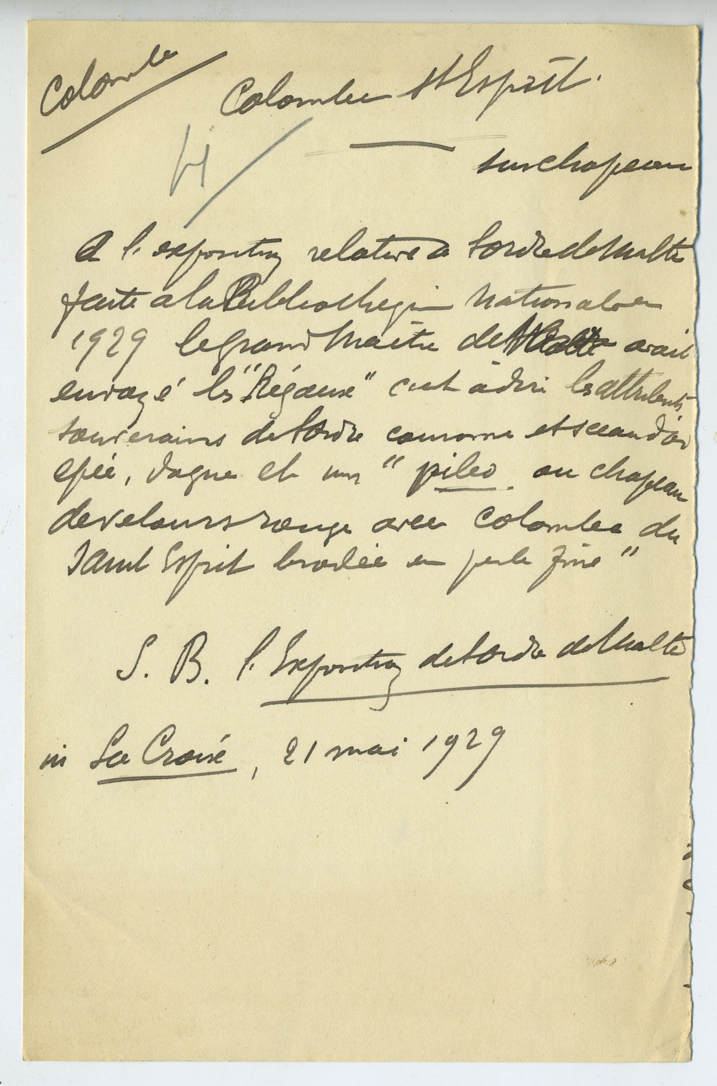 Colombe
Colombe St Esprit.
H
sur chapeau
A l'exposition relative à l'ordre de Malte
faite à la Bibliothèque Nationale en
1929 le grand Maître de Malte avait
envoyé les "Régaux" c'est à dire les attributs
souverains de l'ordre couronne et sceau d'or
épée, dague et un "pileo ou chapeau
de velours rouge avec colombe du
Saint Esprit brodée en perle fine"
S. B. l'Exposition de l'ordre de Malte
in La Croix, 21 mai 1929